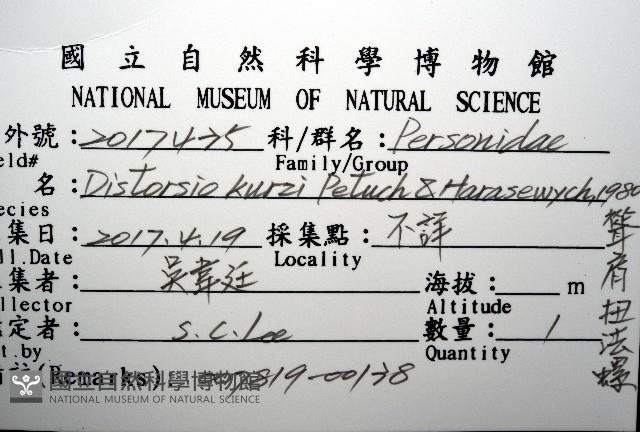 國立自然科學博物館
NATIONAL MUSEUM OF NATURAL SCIENCE
外號：科/群名：Personidae
eld# Family/Group
名：Distorsio kurzi Petuch & Harasewych, 1980
ecies
集日：2017.4.19 採集點：不詳
ll.Date Locality
集者：吳韋廷 海拔： m
llector Altitude
定者：S.C.Lee 數量：1
t.by Quantity
(Remarks)
聳肩扭法螺
國立自然科學博物館
NATIONAL MUSEUM OF NATURAL SCIENCE